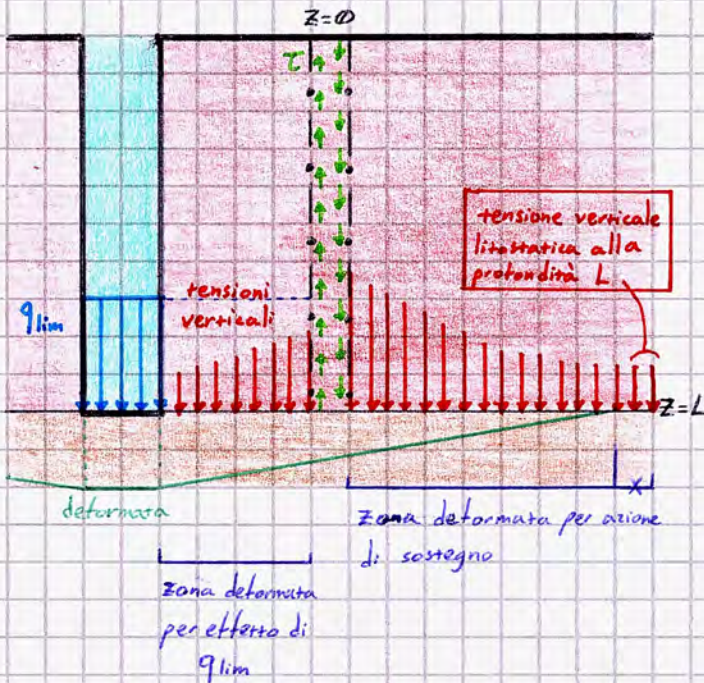 z=0
τ
tensione verticale
litostatica alla
profondità L
tensioni
verticali
qlim
z=L
x
deformata
zona deformata per azione
di sostegno
zona deformata
per effetto di
qlim